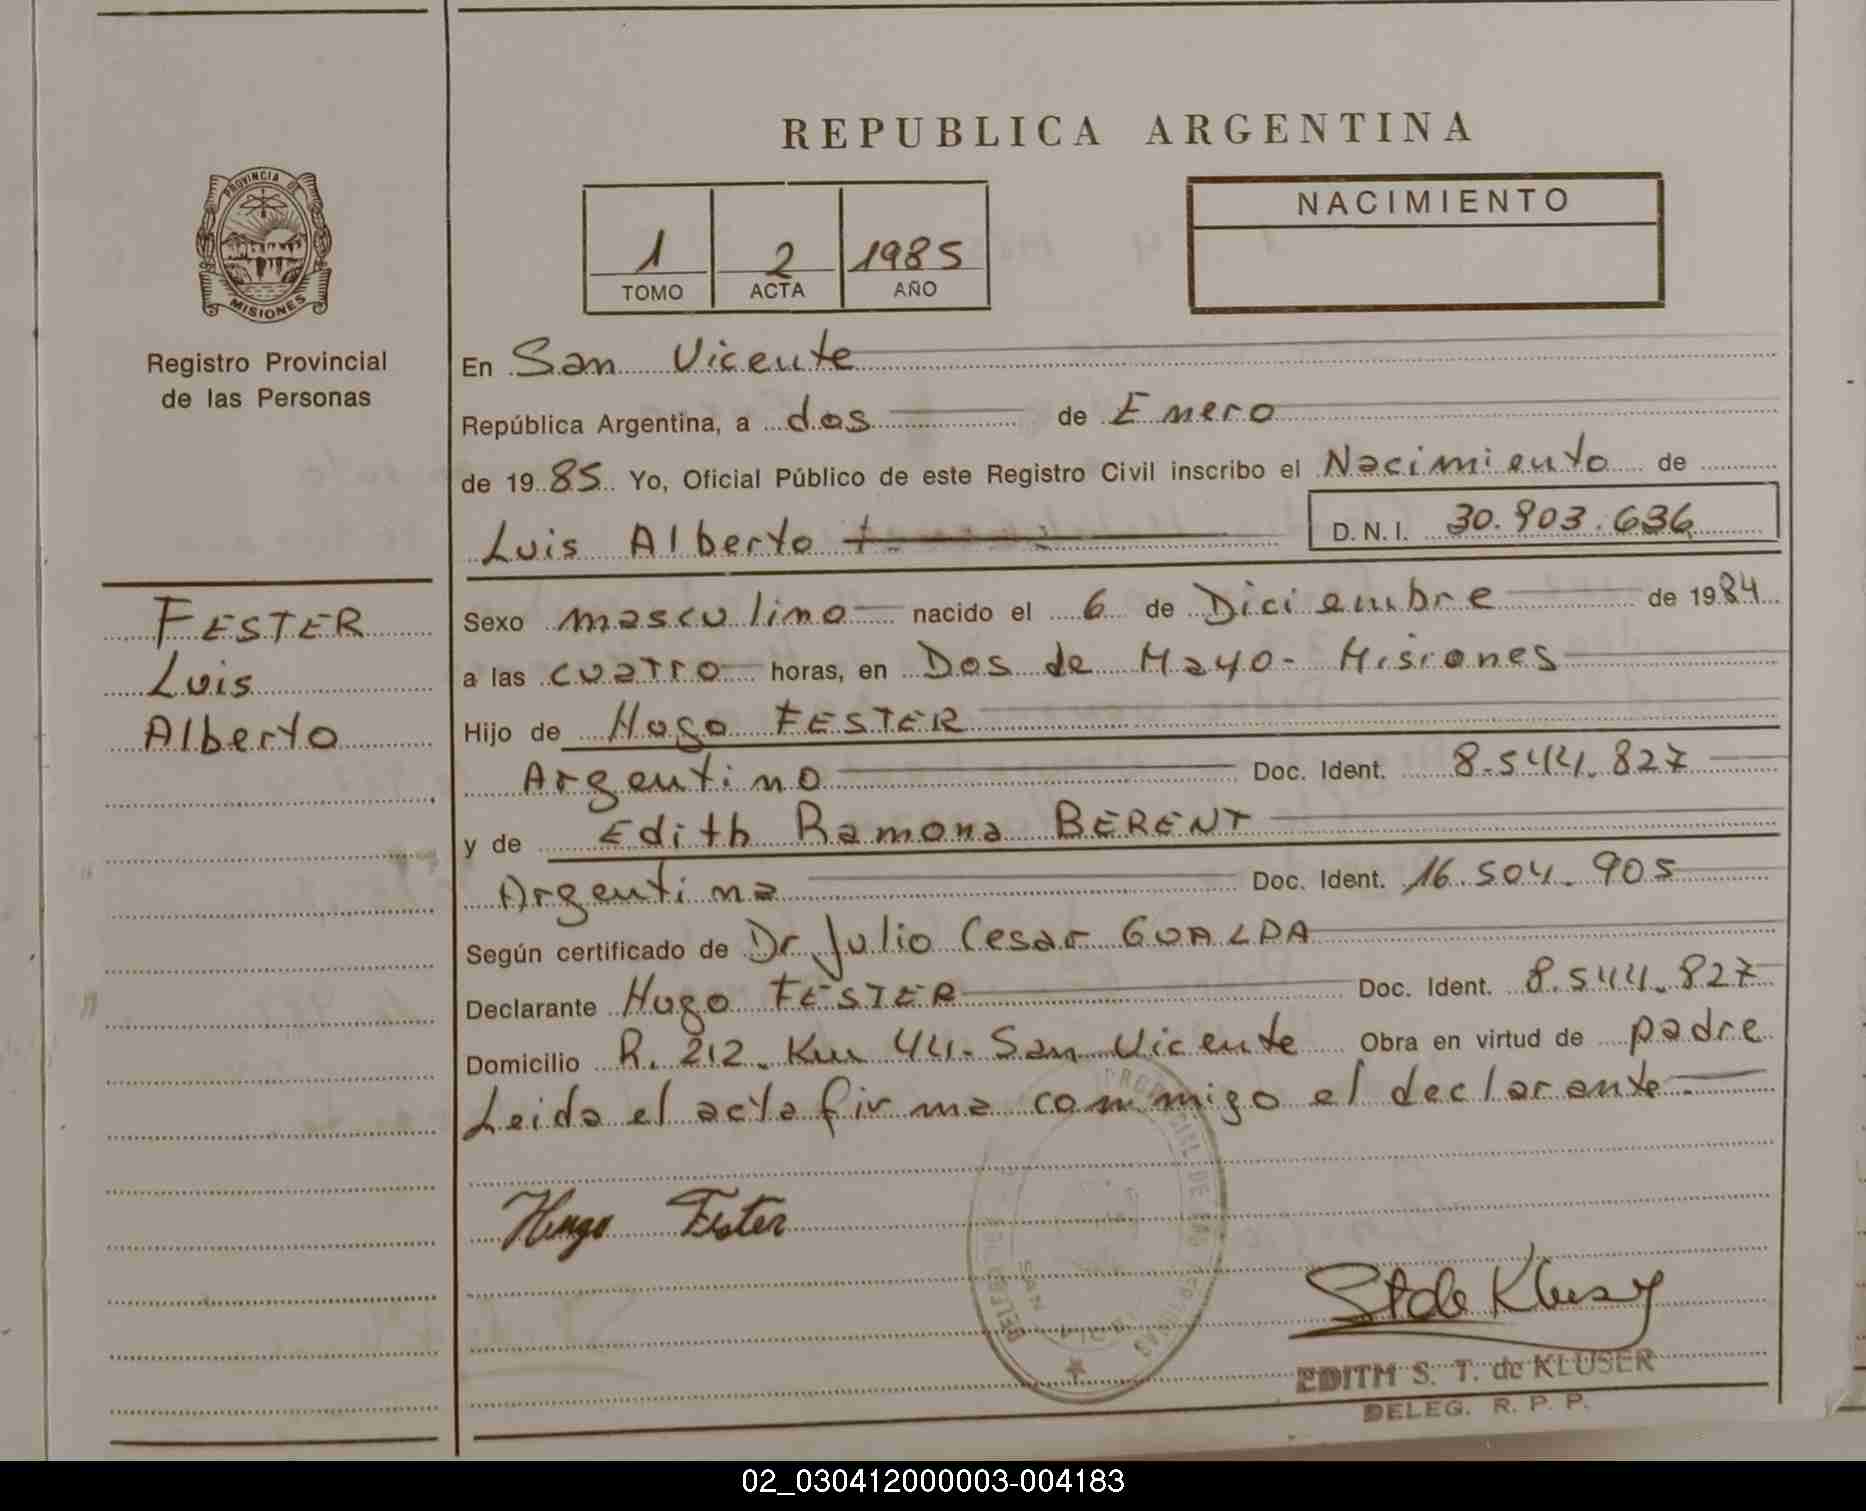 REPUBLICA ARGENTINA
PROVINCIA DE
MISIONES
Registro Provincial
de las Personas
1 2 1985
TOMO ACTA AÑO
NACIMIENTO
En San Vicente
República Argentina, a dos de Enero
de 1985 Yo, Oficial Público de este Registro Civil inscribo el Nacimiento de
Luis Alberto
D.N.I. 30.903.636
FESTER
Luis
Alberto
Sexo masculino nacido el 6 de Diciembre de 1984
a las cuatro horas, en Dos de Mayo - Misiones
Hijo de Hugo FESTER
Argentino Doc. Ident. 8.544.827
y de Edith Ramona BERENT
Argentina Doc. Ident. 16.504.905
Según certificado de Dr Julio Cesar GUALDA
Declarante Hugo FESTER Doc. Ident. 8.544.827
Domicilio R. 212. Km 44. San Vicente Obra en virtud de padre
Leida el acta firma conmigo el declarante
Hugo Fester
SAN
EDITH S. T. de KLUSER
DELEG. R. P. P.
02_030412000003-004183